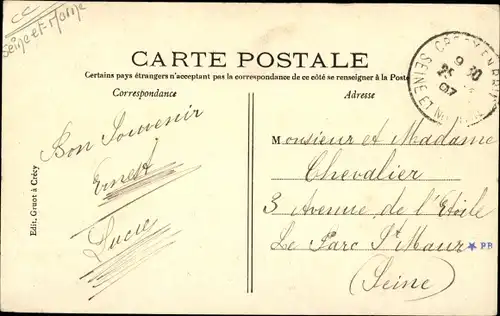 CC
Seine-et-Marne
CARTE POSTALE
Certains pays étrangers n'acceptant pas la correspondance de ce côté se renseigner à la Poste
Correspondance
Adresse
Bon Souvenir
Ernest
Lucie
Monsieur et Madame
Chevalier
3 Avenue de l'Etoile
Le Parc St Maur
(Seine)
Edit. Gruot à Crécy
CRECY EN BRIE
9 30
25
07
SEINE ET MARNE
PB